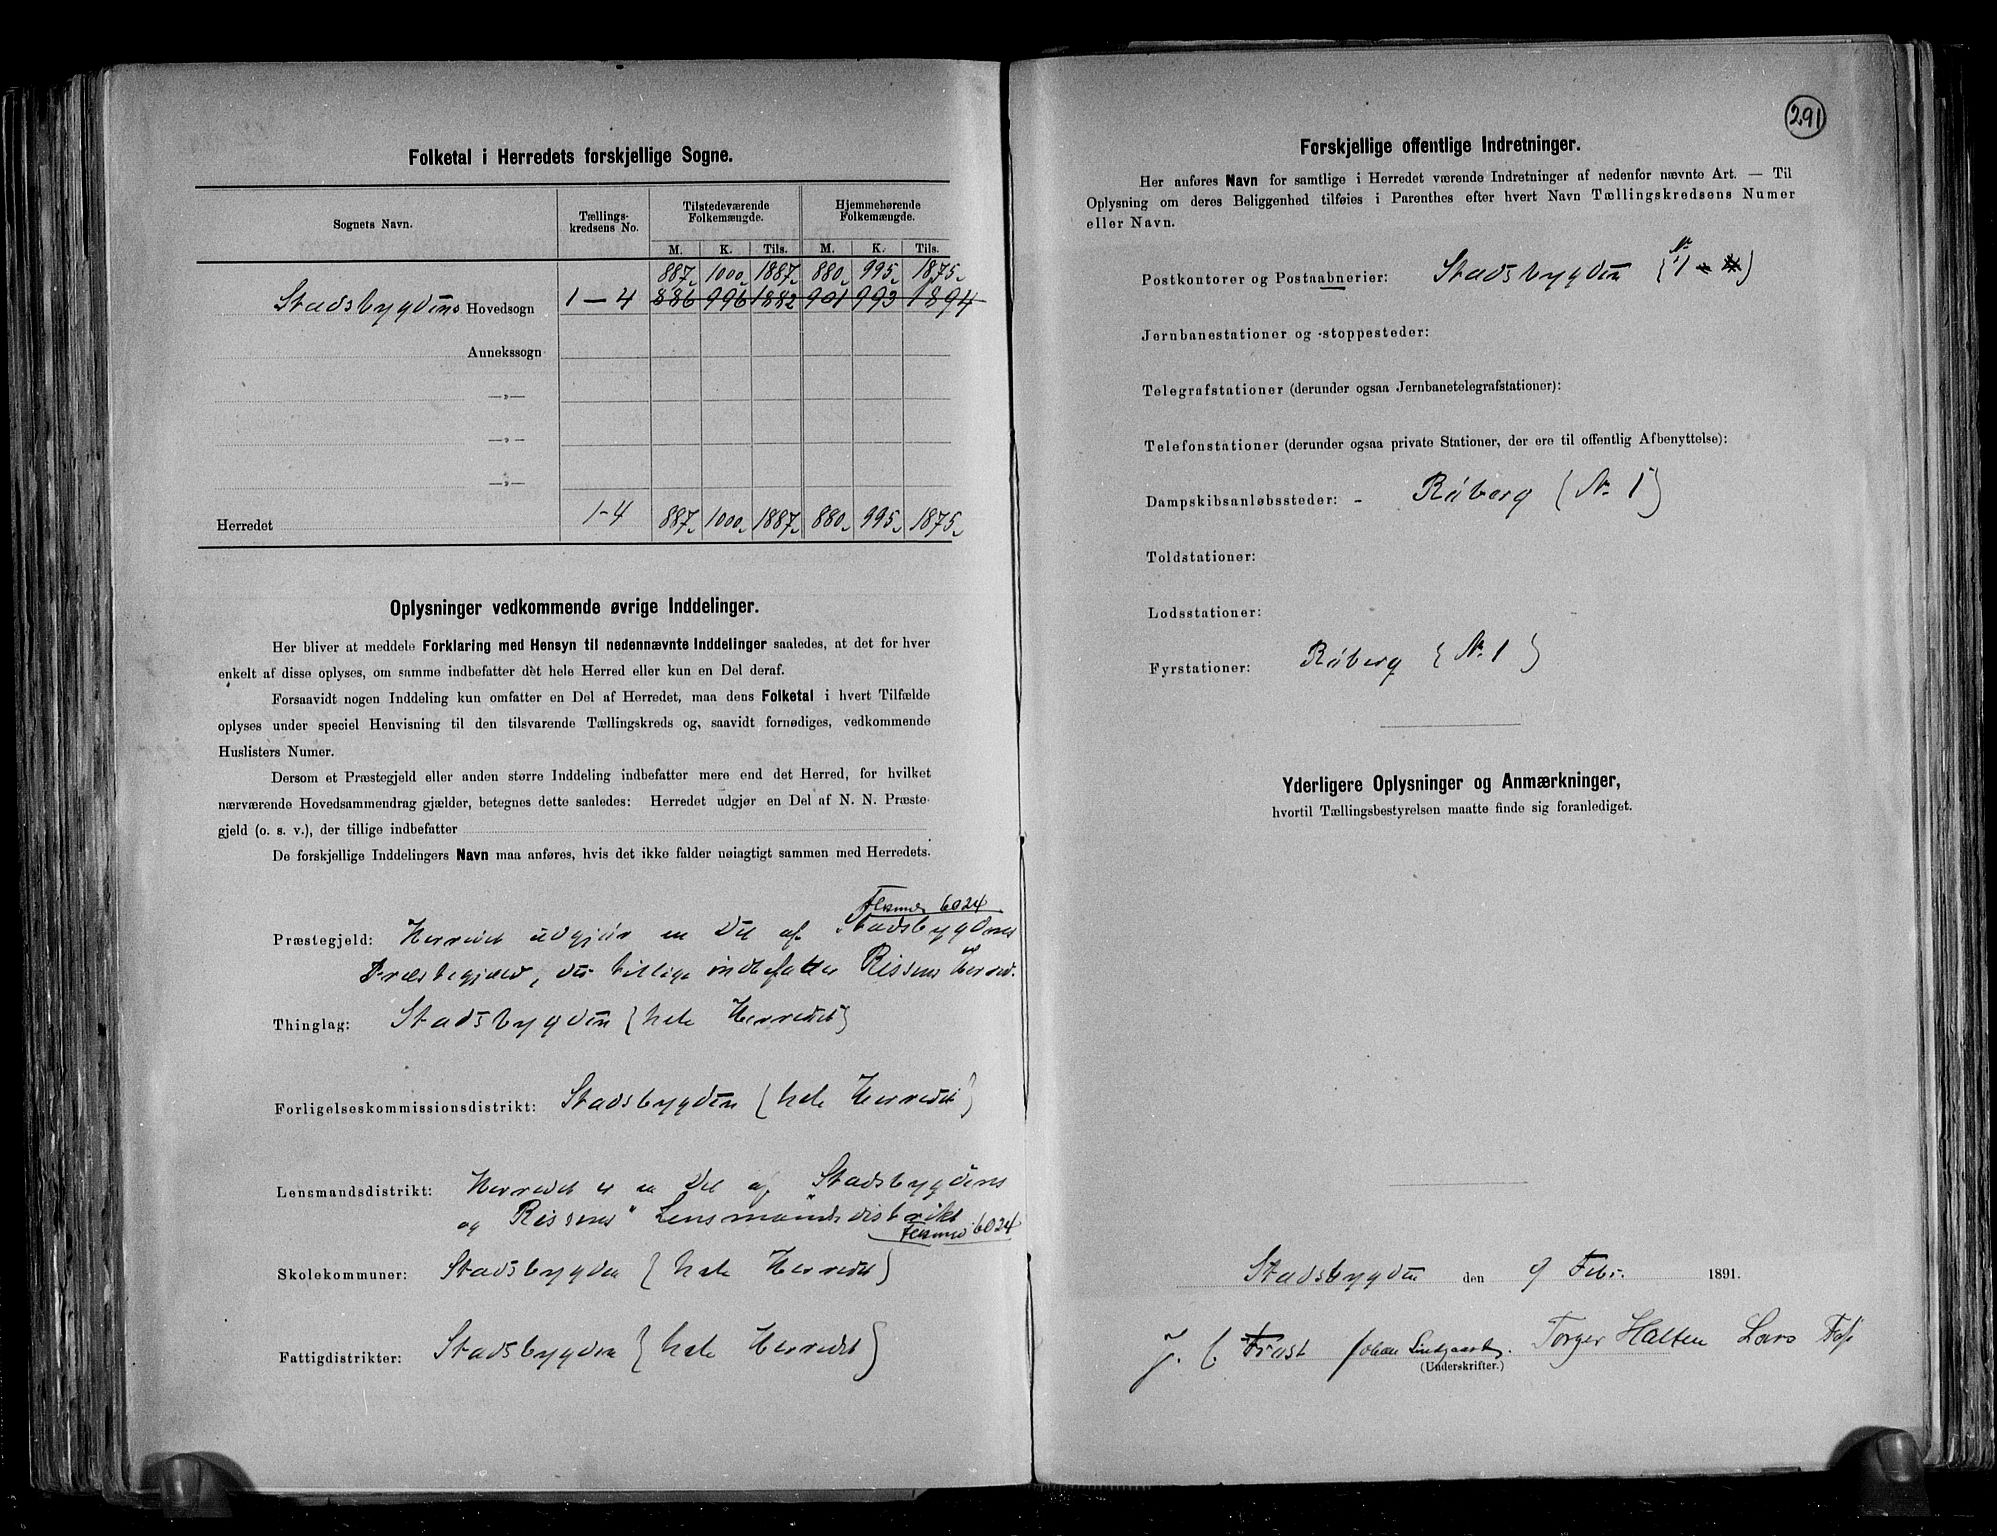 Folketal i Herredets forskjellige Sogne.
Sognets Navn. Tællings-kredsens No. Tilstedeværende Folkemængde. Hjemmehørende Folkemængde.
M. K. Tils. M. K. Tils.
887 1000 1887 880 995 1875
Stadsbygdens Hovedsogn 1-4 886 996 1882 901 993 1894
Annekssogn
—„—
—„—
—„—
Herredet 1-4 887 1000 1887 880 995 1875
Oplysninger vedkommende øvrige Inddelinger.
Her bliver at meddele Forklaring med Hensyn til nedennævnte Inddelinger saaledes, at det for hver
enkelt af disse oplyses, om samme indbefatter dèt hele Herred eller kun en Del deraf.
Forsaavidt nogen Inddeling kun omfatter en Del af Herredet, maa dens Folketal i hvert Tilfælde
oplyses under speciel Henvisning til den tilsvarende Tællingskreds og, saavidt fornødiges, vedkommende
Huslisters Numer.
Dersom et Præstegjeld eller anden større Inddeling indbefatter mere end det Herred, for hvilket
nærværende Hovedsammendrag gjælder, betegnes dette saaledes: Herredet udgjør en Del af N. N. Præste-
gjeld (o. s. v.), der tillige indbefatter
De forskjellige Inddelingers Navn maa anføres, hvis det ikke falder nøiagtigt sammen med Herredets.
6024
Præstegjeld: Herredet udgjør en Del af Stadsbygdens
Præstegjeld, der tillige indbefatter Rissens Herred.
Thinglag: Stadsbygden (hele Herredet)
Forligelseskommissionsdistrikt: Stadsbygden (hele Herredet)
Lensmandsdistrikt: Herredet er en Del af "Stadsbygdens
og Rissens" Lensmandsdistrikt
6024
Skolekommuner: Stadsbygden (hele Herredet)
Fattigdistrikter: Stadsbygden (hele Herredet)
291
Forskjellige offentlige Indretninger.
Her anføres Navn for samtlige i Herredet værende Indretninger af nedenfor nævnte Art. — Til
Oplysning om deres Beliggenhed tilføies i Parenthes efter hvert Navn Tællingskredsens Numer
eller Navn.
Postkontorer og Postaabnerier: Stadsbygden (No 1 - 4)
Jernbanestationer og -stoppesteder:
Telegrafstationer (derunder ogsaa Jernbanetelegrafstationer):
Telefonstationer (derunder ogsaa private Stationer, der ere til offentlig Afbenyttelse):
Dampskibsanløbsteder: - Røberg (No 1)
Toldstationer:
Lodsstationer:
Fyrstationer: Røberg (No 1)
Yderligere Oplysninger og Anmærkninger,
hvortil Tællingsbestyrelsen maatte finde sig foranlediget.
Stadsbygden den 9 Febr. 1891.
J. C. Frost Johan Lindgaard. Torger Halten Lars
(Underskrifter.)